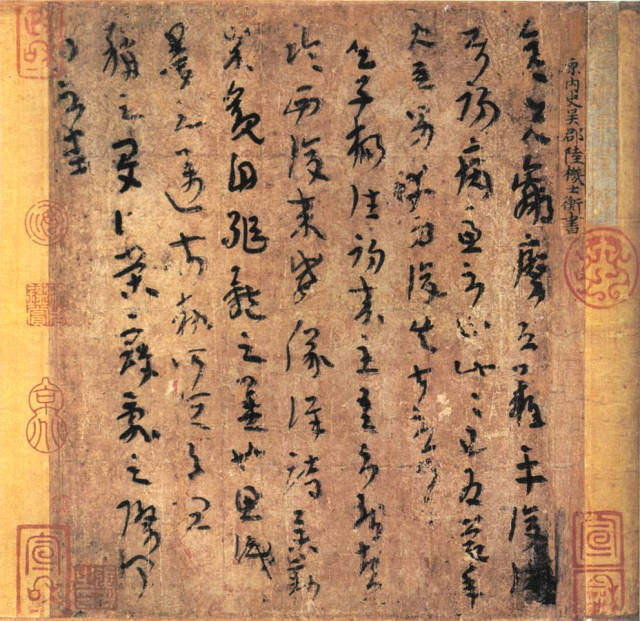 原內史吳郡陸機士衡書
彥先羸瘵恐難平復往屬
初病慮不止此此已為慶承
使唯男幸為復失前憂耳
子楊往初來主吾不能盡
臨西復來威儀詳跱舉動
成觀自軀體之美也思識
量之邁前執所恒有宜
稱之夏伯榮寇亂之際聞
問不悉